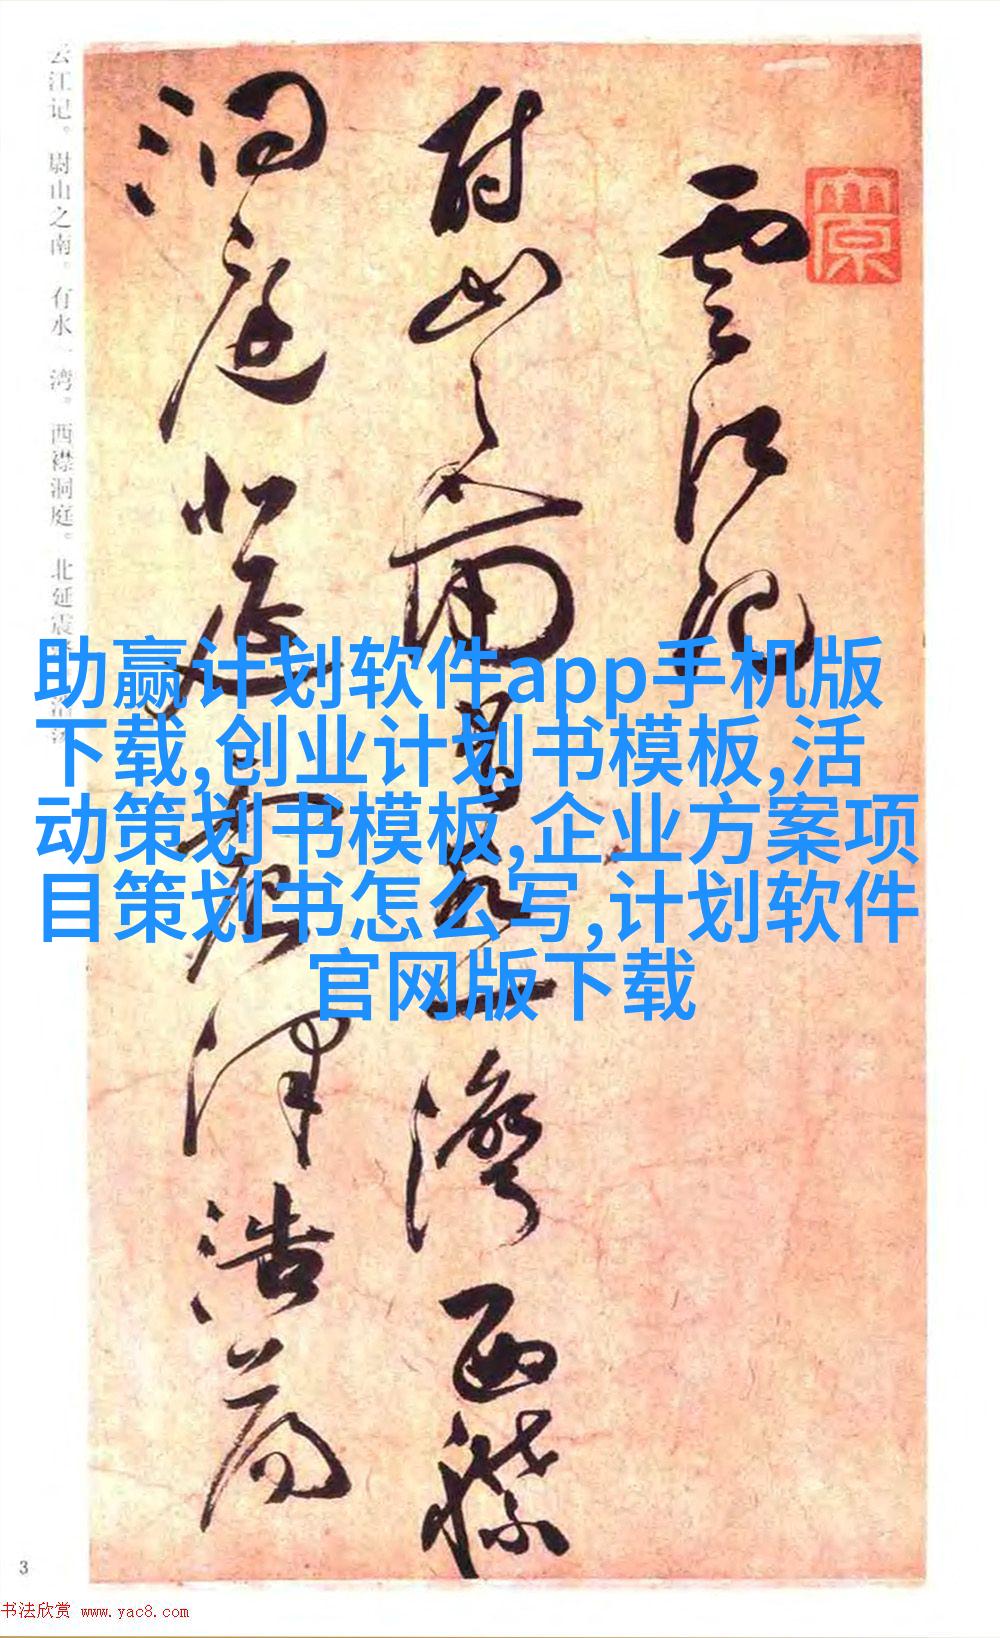 云江记。尉山之南。有水一湾。西襟洞庭。北延震泽。浩荡
雲江記
尉山之南有水一灣西襟
洞庭北延震澤浩荡
助赢计划软件app手机版
下载,创业计划书模板,活
动策划书模板,企业方案项
目策划书怎么写,计划软件
官网版下载
3
书法欣赏 www.yac8.com